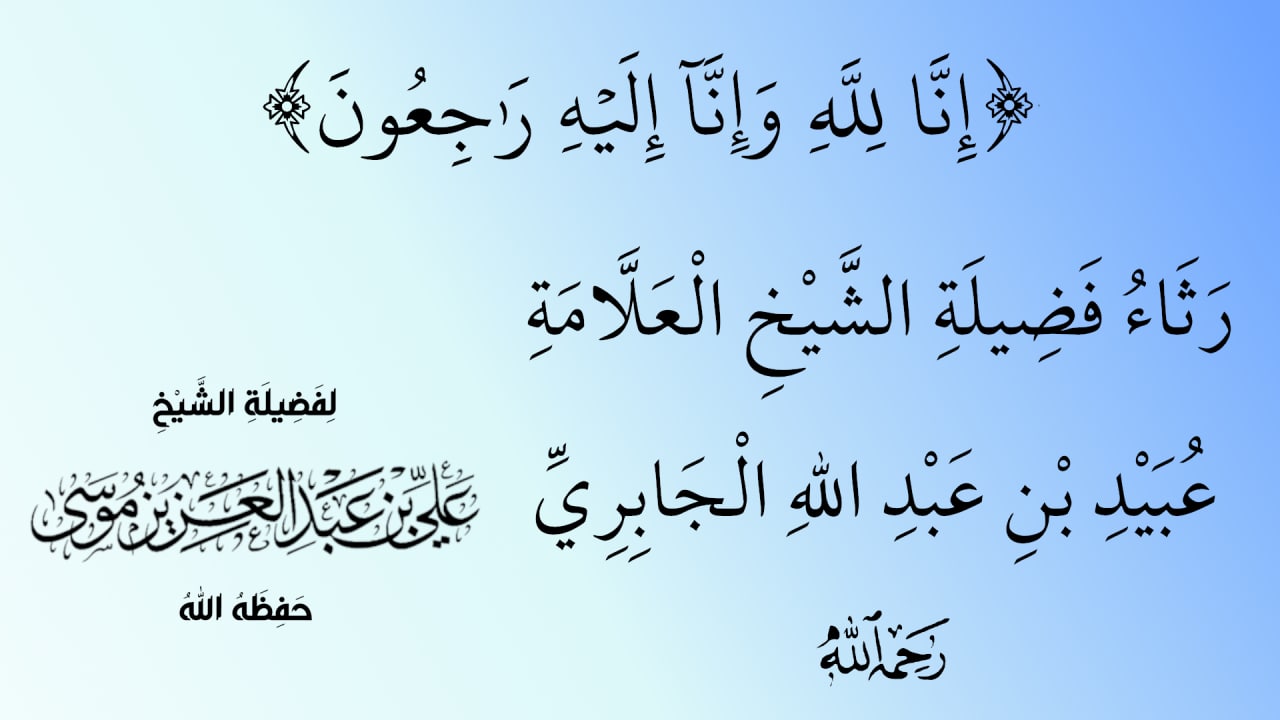 ﴿إِنَّا لِلَّهِ وَإِنَّآ إِلَيْهِ رَٰجِعُونَ﴾
رَثَاءُ فَضِيلَةِ الشَّيْخِ الْعَلَّامَةِ
عُبَيْدِ بْنِ عَبْدِ اللهِ الْجَابِرِيِّ
رَحِمَهُ ٱللهُ
لِفَضِيلَةِ الشَّيْخِ
عَلِيِّ بْنِ عَبْدِ العَزِيزِ بْنِ مُوسَى
حَفِظَهُ اللهُ